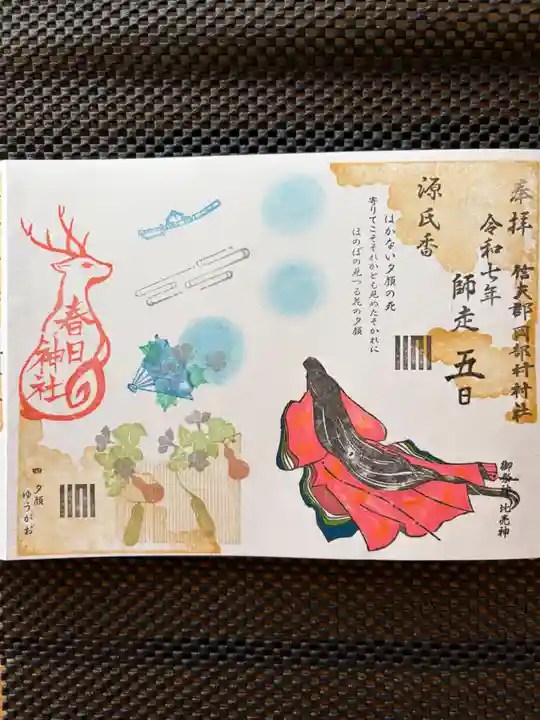 奉拝
信夫郡岡部村村社
令和七年
師走 五日
源氏香
はかない夕顔の死
寄りてこそそれかとも見めたそかれに
ほのぼの見つる花の夕顔
春日
神社
四 夕顔
ゆうがお